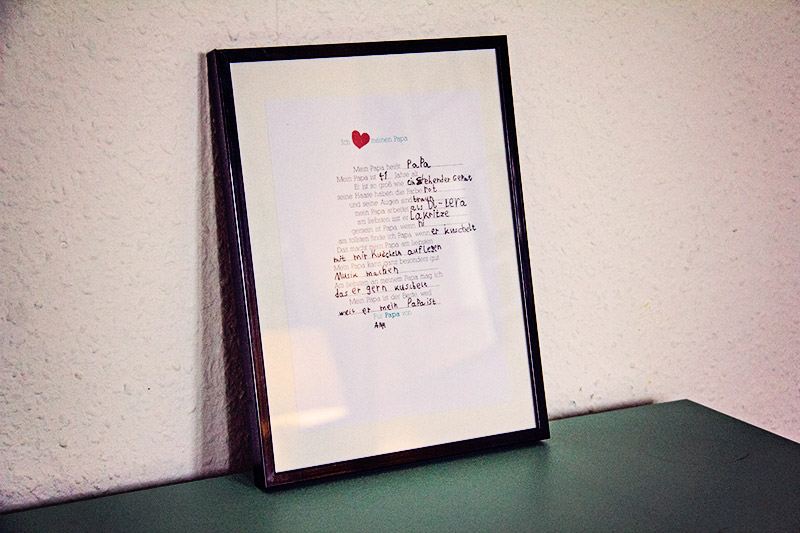 Ich meinen Papa
Mein Papa heißt PaPa
Mein Papa ist 41 Jahre alt
Er ist so groß wie ein stehender
seine Haare haben die Farbe rot
und seine Augen sind
mein Papa arbeitet als
am liebsten isst er Lakritze
gemein ist Papa, wenn
am tollsten finde ich Papa, wenn er kuschelt
Das macht mein Papa am liebsten
mit mir Kuscheln auflegen
Mein Papa kann ganz besonders gut
Musik machen
Am liebsten an meinem Papa mag ich
das er gern kuscheln
Mein Papa ist der Beste, weil
weil er mein Papa ist
Für Papa von